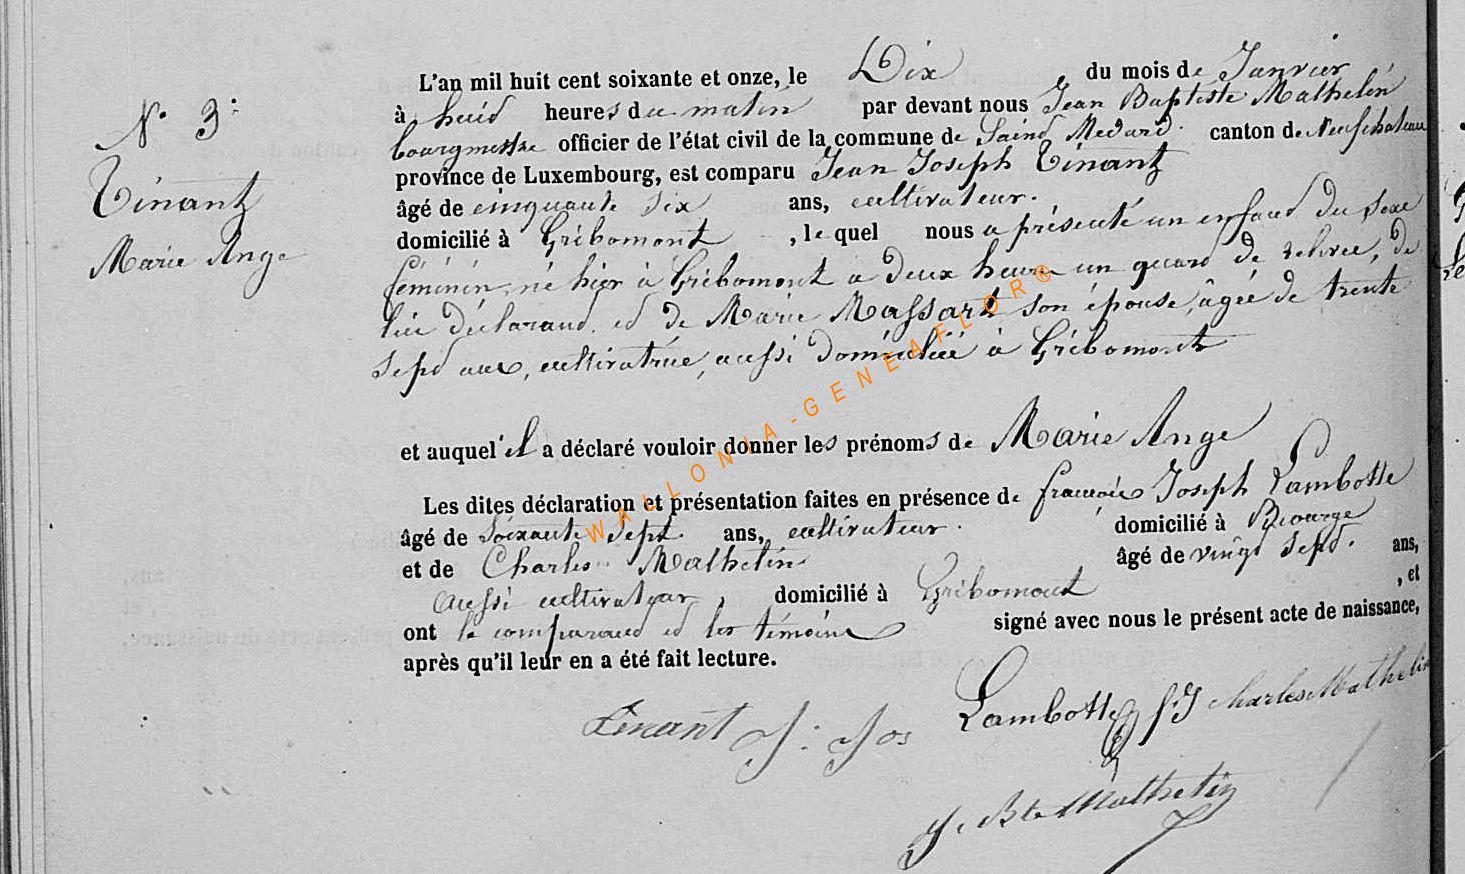 N° 3.
Tinant
Marie Ange
L'an mil huit cent soixante et onze, le Dix du mois de Janvier
à huid heures du matin par devant nous Jean Baptiste Mathelin
bourgmestre officier de l'état civil de la commune de Saind Medard. canton de Neufchateau
province de Luxembourg, est comparu Jean Joseph Tinant
âgé de cinquante six ans, cultivateur.
domicilié à Gribomont, lequel nous a présenté un enfand du sexe
féminin, né hier à Gribomont a deux heures un quard de relevee, de
lui déclarand. ed de Marie Massart son épouse, âgée de trente
sepd ans, cultivatrice, aussi domiciliée à Gribomont
et auquel il a déclaré vouloir donner les prénoms de Marie Ange
Les dites déclaration et présentation faites en présence de francois Joseph Lambotte
âgé de soixante sept. ans, cultivateur. domicilié à Biourge
et de Charles Mathelin âgé de vingd sepd. ans,
aussi cultivateur, domicilié à Gribomont, et
ont le comparand ed les témoins signé avec nous le présent acte de naissance,
après qu'il leur en a été fait lecture.
Tinant J: Jos Lambotte f.J Charles Mathelin
J. Bte Mathelin
WALLONIA-GENEAFLOR®